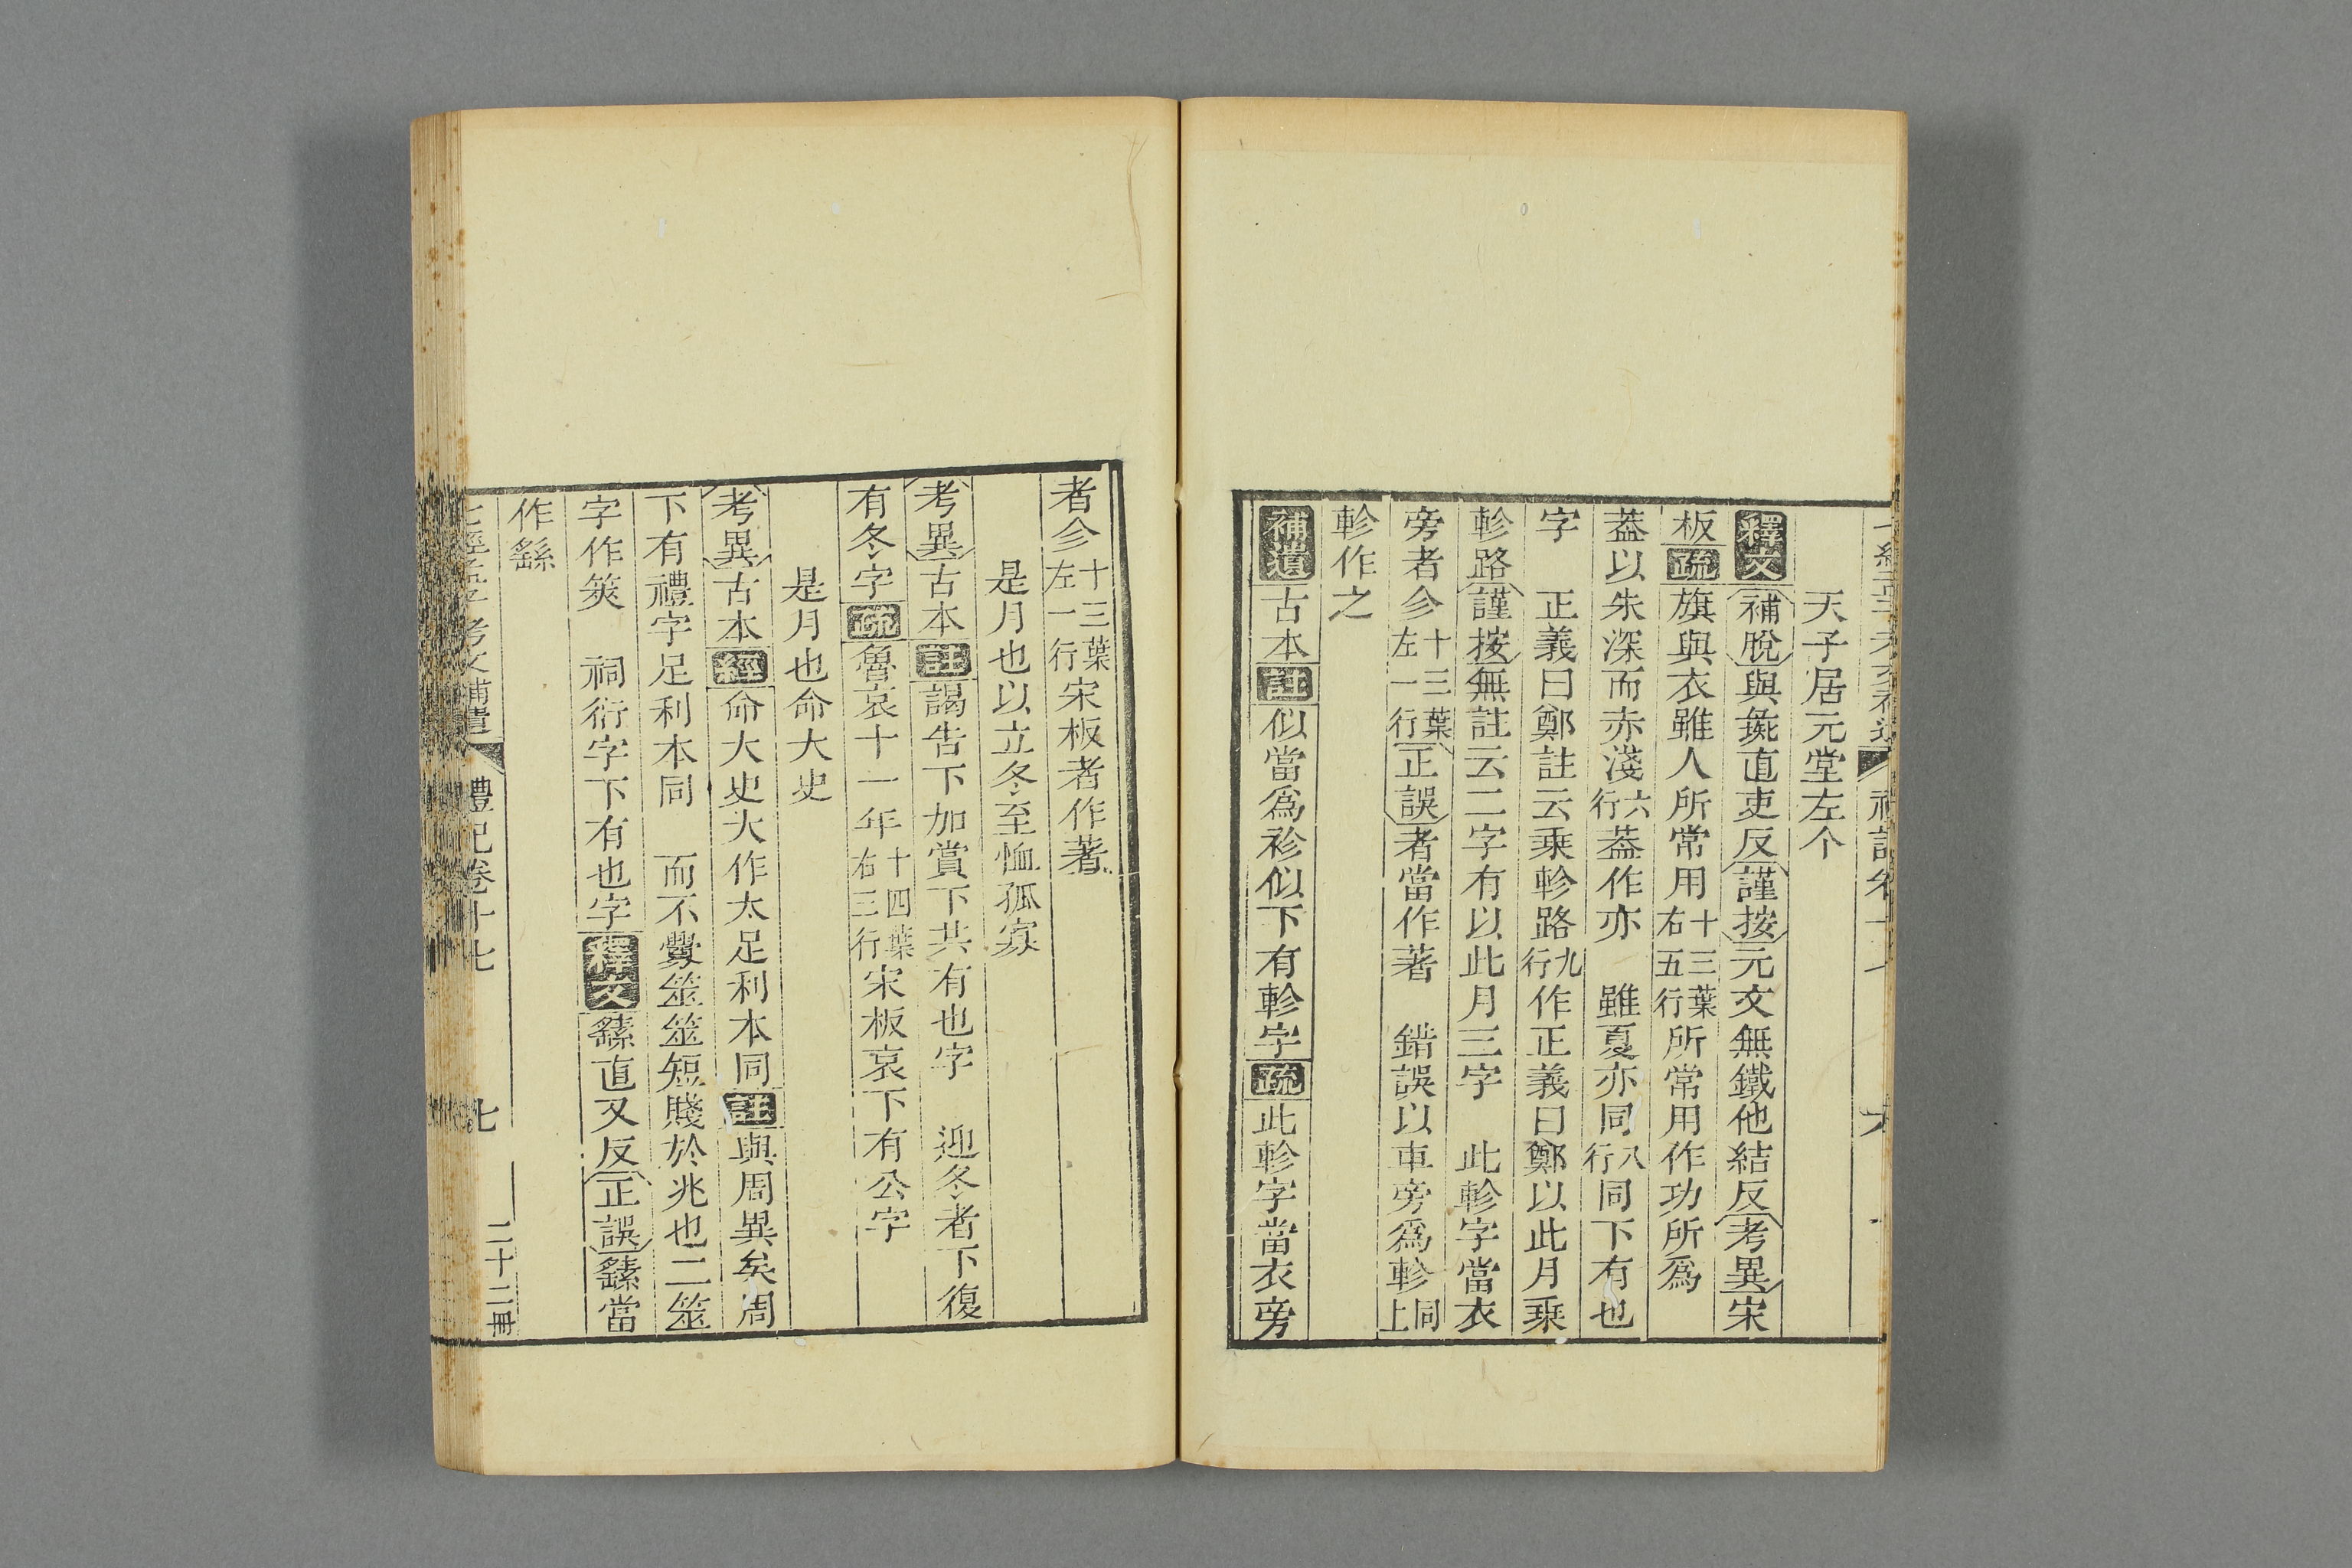 天子居元堂左个
釋文補脫與㲋直吏反謹按元文無鐵他結反考異宋
板疏旗與衣雖人所常用十三葉右五行所常用作功所爲
葢以朱深而赤淺六行葢作亦　雖夏亦同八行同下有也
字　正義曰鄭註云乘軫路九行作正義曰鄭以此月乘
軫路謹按無註云二字有以此月三字　此軫字當衣
旁者㐱十三葉左一行正誤者當作著　錯誤以車旁爲軫同上
軫作之
補遺古本註似當爲袗似下有軫字疏此軫字當衣旁
者㐱十三葉左一行宋板者作著
是月也以立冬至恤孤寡
考異古本註謁告下加賞下共有也字　迎冬者下復
有冬字疏魯哀十一年十四葉右三行宋板哀下有公字
是月也命大史
考異古本經命大史大作太足利本同註與周異矣周
下有禮字足利本同　而不釁筮筮短賤於兆也二筮
字作筴　祠衍字下有也字釋文繇直又反正誤繇當
作繇
七經孟子考文補遺　禮記卷十七　七　二十二冊